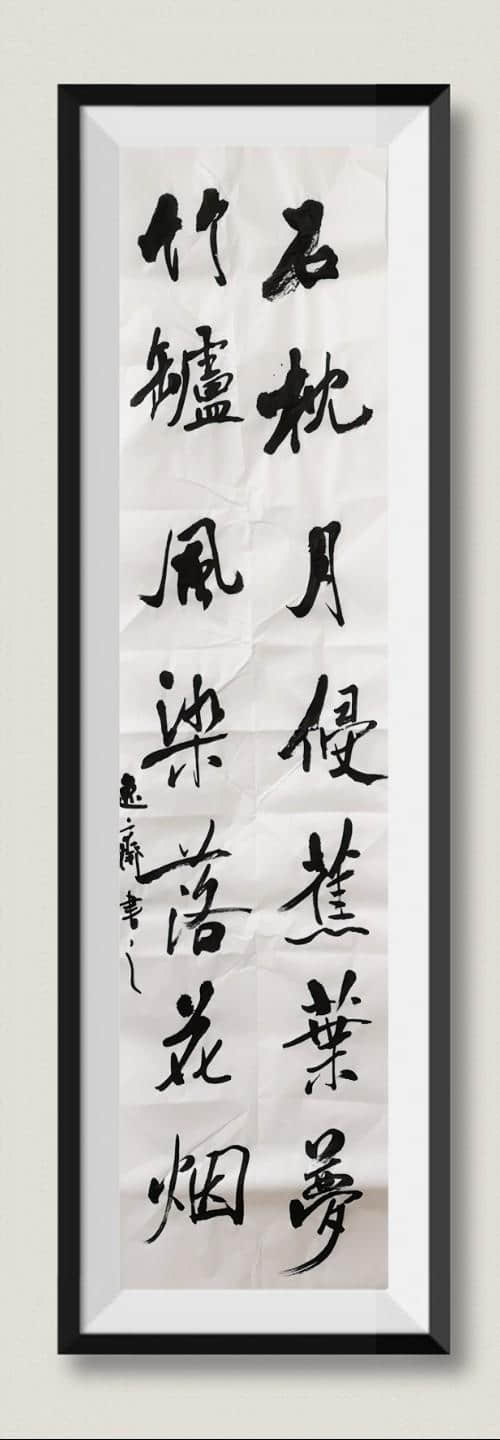 石枕月侵蕉葉夢
竹罏風染落花烟
逸齋書之